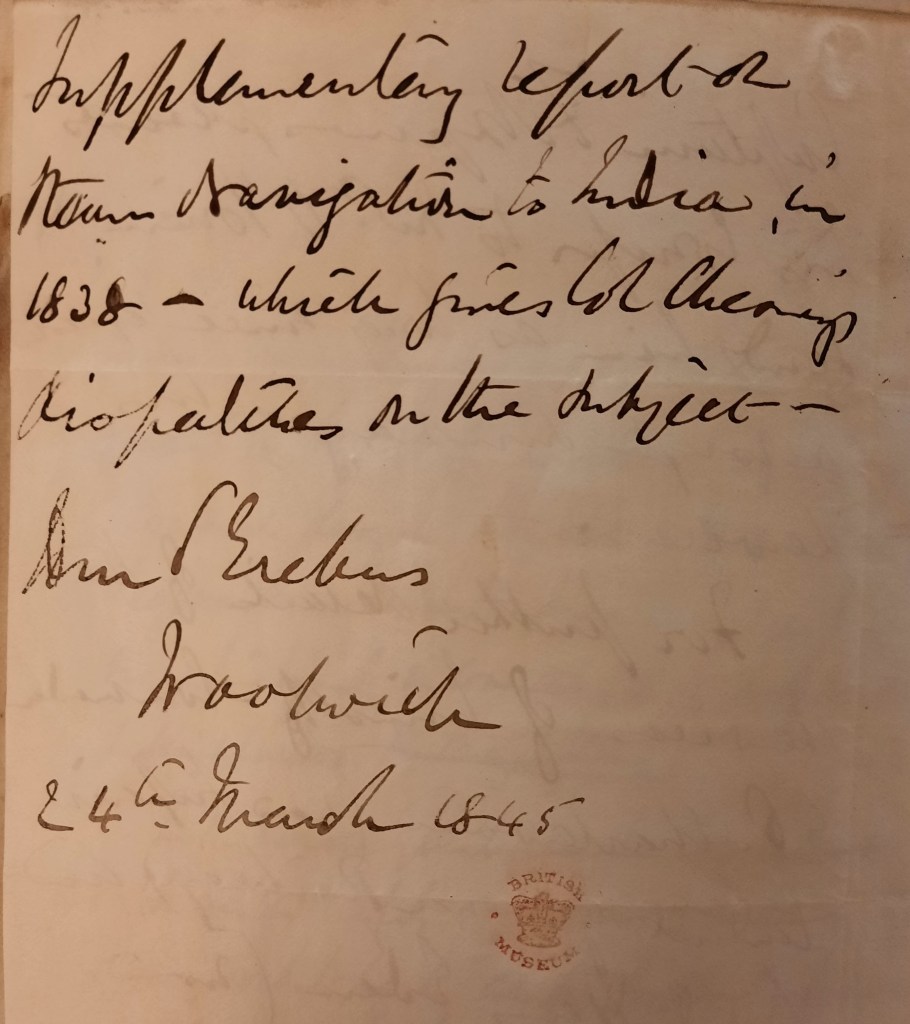 Supplementary report on
Steam Navigation to India, in
1838 – which gives Col Chesneys
dispatches on the subject –
Erebus
Woolwich
24th March 1845
BRITISH
MUSEUM